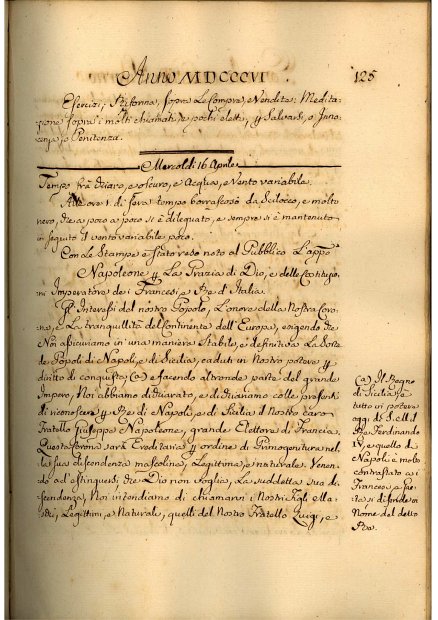 Anno MDCCCVI.
125
Esercizj; Riforma, sopra Le Compre, e Vendite: Medita-
zione sopra i molti chiamati, e pochi eletti, p Salvarsi, o Inno-
cenza, o Penitenza.
Mercoldì 16 Aprile
Tempo frà chiaro, e oscuro, e Acqua, e Vento variabile.
Alle ore 1. di sera tempo borrascoso da Scilocco, e molto
nero, che a poco a poco si è dileguato, e sempre si è mantenuto
in seguito il vento variabile poco.
Con le Stampe è stato reso noto al Pubblico L'appo
Napoleone p La Grazia di Dio, e delle Costituzio-
ni Imperatore de i Francesi, e Re d'Italia.
Gl'Interessi del nostro Popolo, L'onore della Nostra Coro-
na, e La tranquillità del Continente dell'Europa, esigendo che
Noi assicuriamo in una maniera stabile, e definitiva La Sorte
de Popoli di Napoli, e di Sicilia, caduti in Nostro potere p
diritto di conquista (a) e facendo altronde parte del grande
Impero, Noi abbiamo dichiarato, e dichiariamo colle presenti
di riconoscere p Re di Napoli, e di Sicilia il nostro caro
Fratello Giuseppe Napoleone, grande Elettore di Francia.
Questa Corona sarà Ereditaria p ordine di Primogenitura nel-
la sua discendenza mascolina, Legittima, e naturale. Venen-
do ad estinguersi, che Dio non voglia, La suddetta sua di-
scendenza, Noi intendiamo di chiamarvi i Nostri Figli ma-
schi, Legittimi, e Naturali, quelli del Nostro Fratello Luigi, e
(a) Il Regno
di Sicilia è
tutto in potere
oggi di S. M. il
Re Ferdinando
IV, e quello di
Napoli è molto
contrastato a i
Francesi, e Gae-
ta si difende a
Nome del detto
Re.